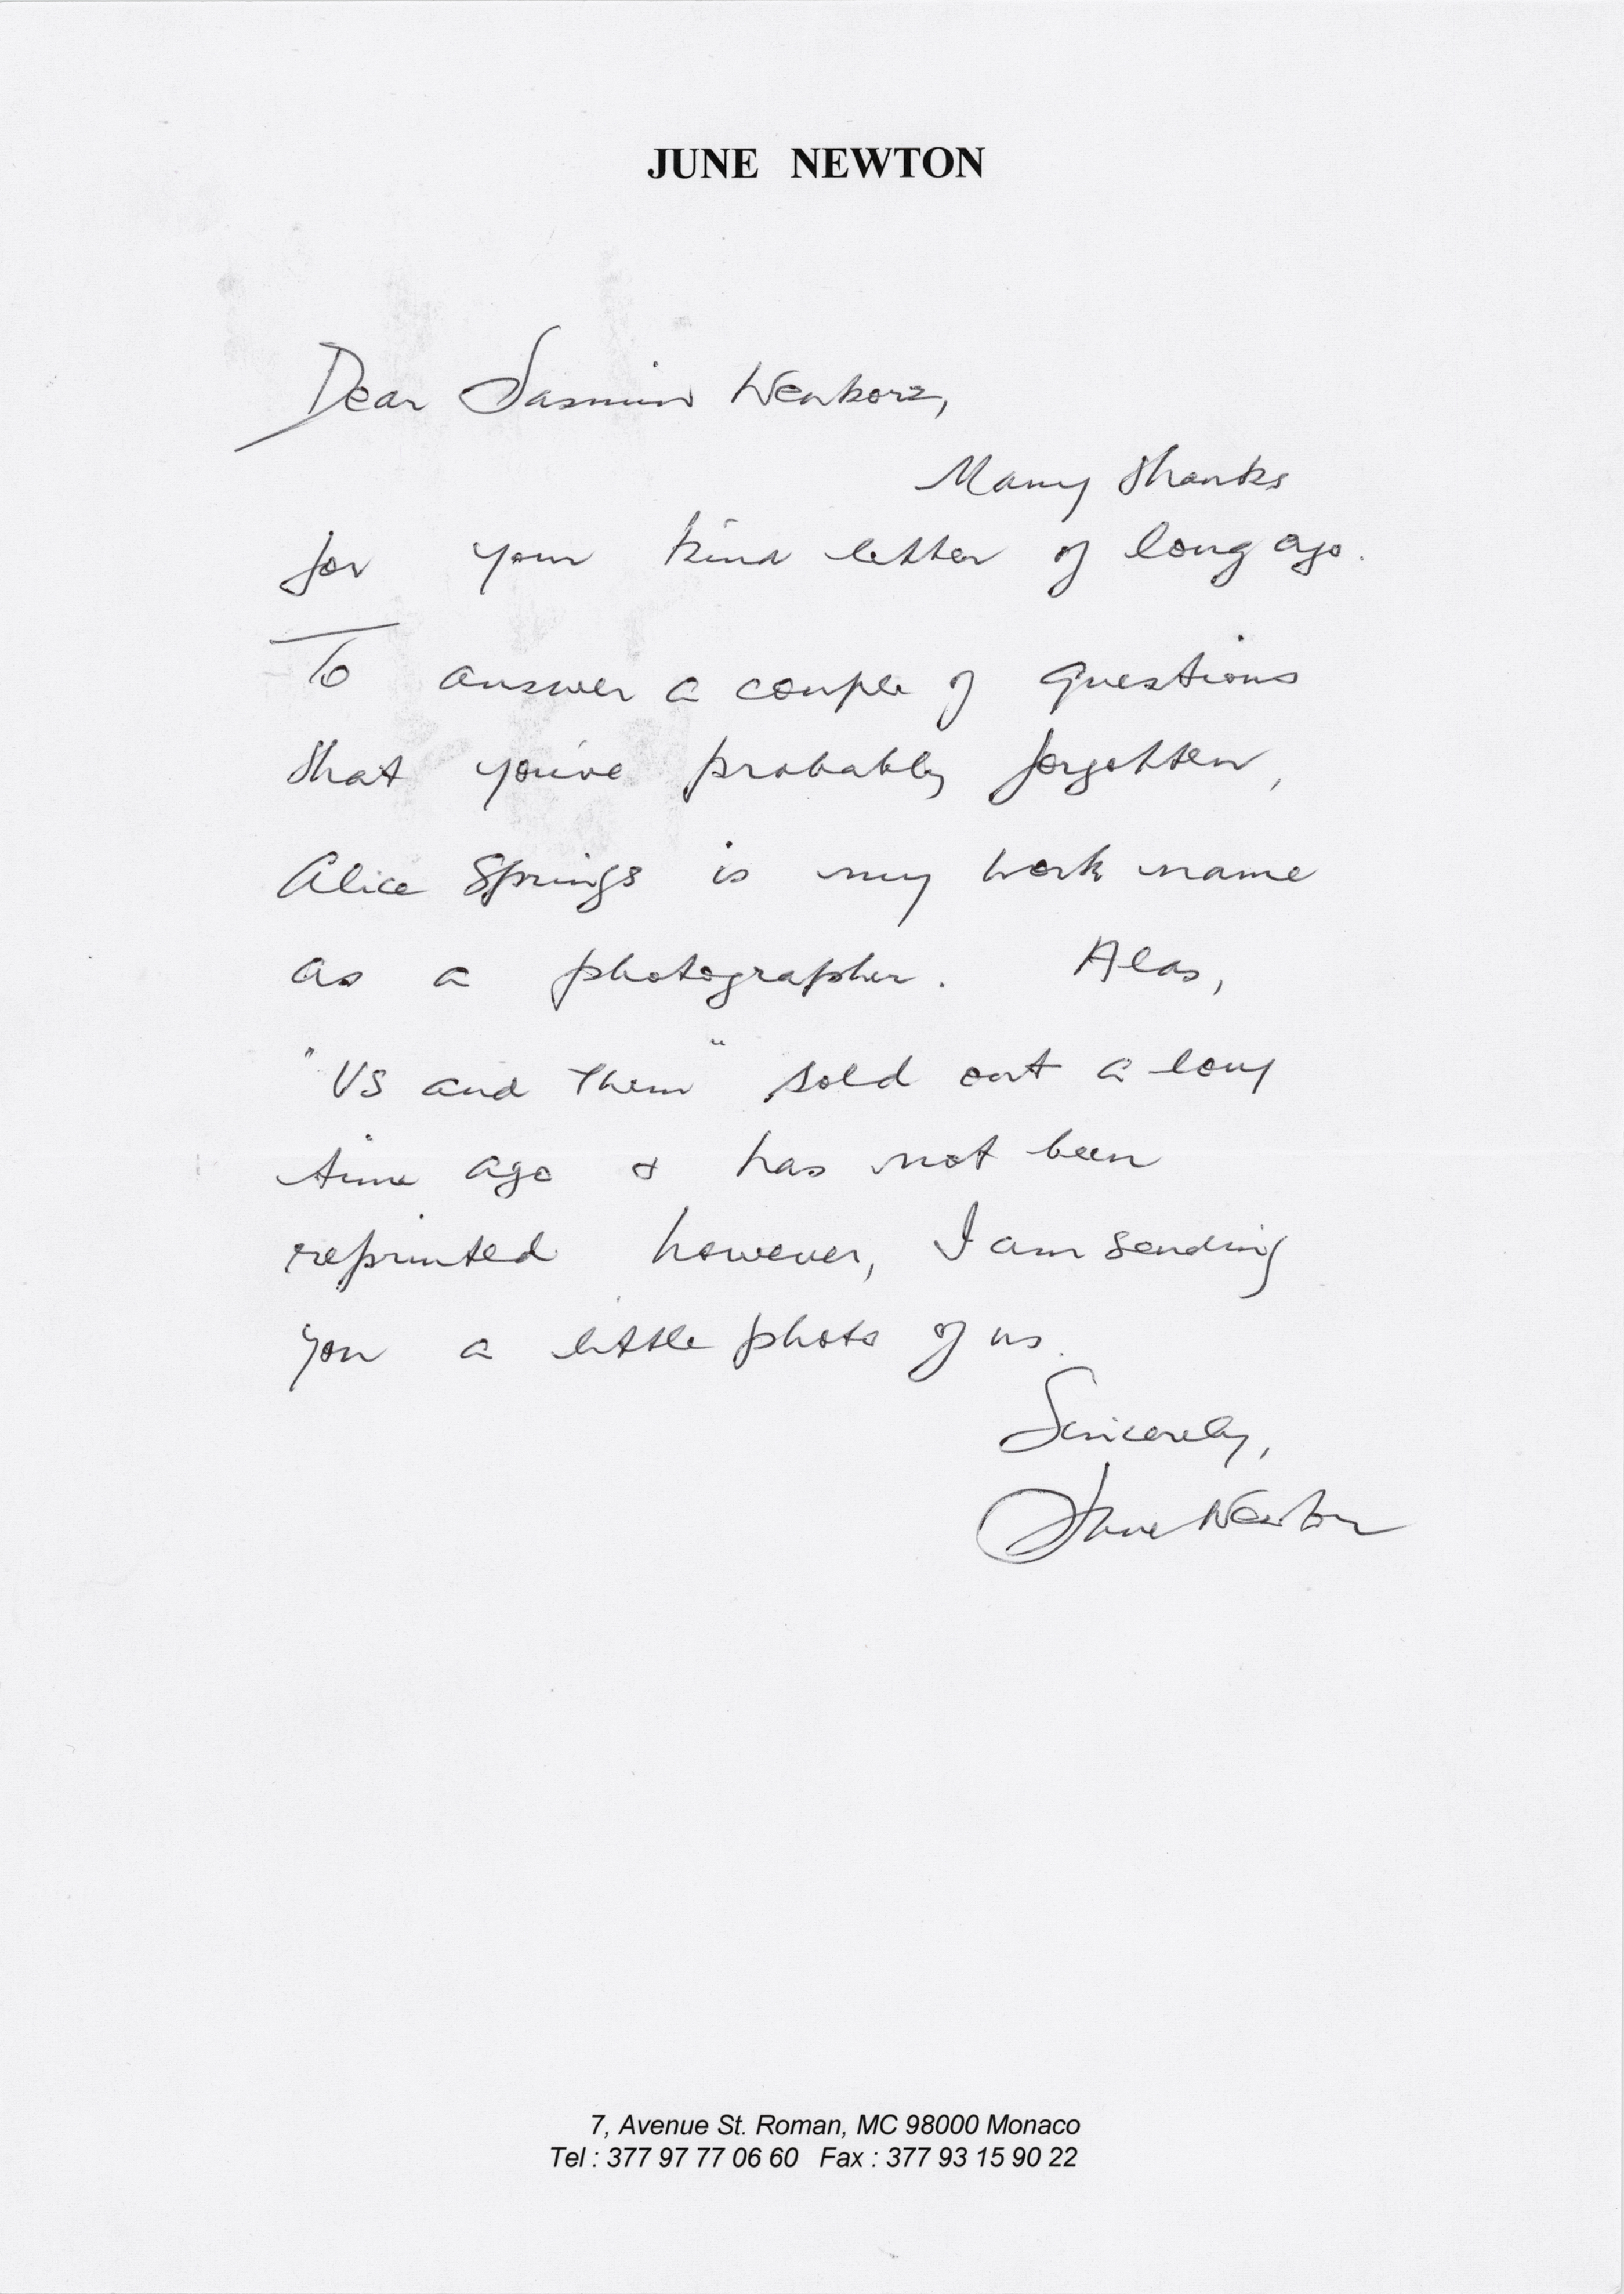 JUNE NEWTON
Dear Jasmin
Many thanks
for your kind letter of long ago.
To answer a couple of questions
that you've probably forgotten,
Alice Springs is my work name
as a photographer. Alas,
"US and Them" sold out a long
time ago & has not been
reprinted however, I am sending
you a little photo of us.
Sincerely,
June Newton
7, Avenue St. Roman, MC 98000 Monaco
Tel : 377 97 77 06 60 Fax : 377 93 15 90 22